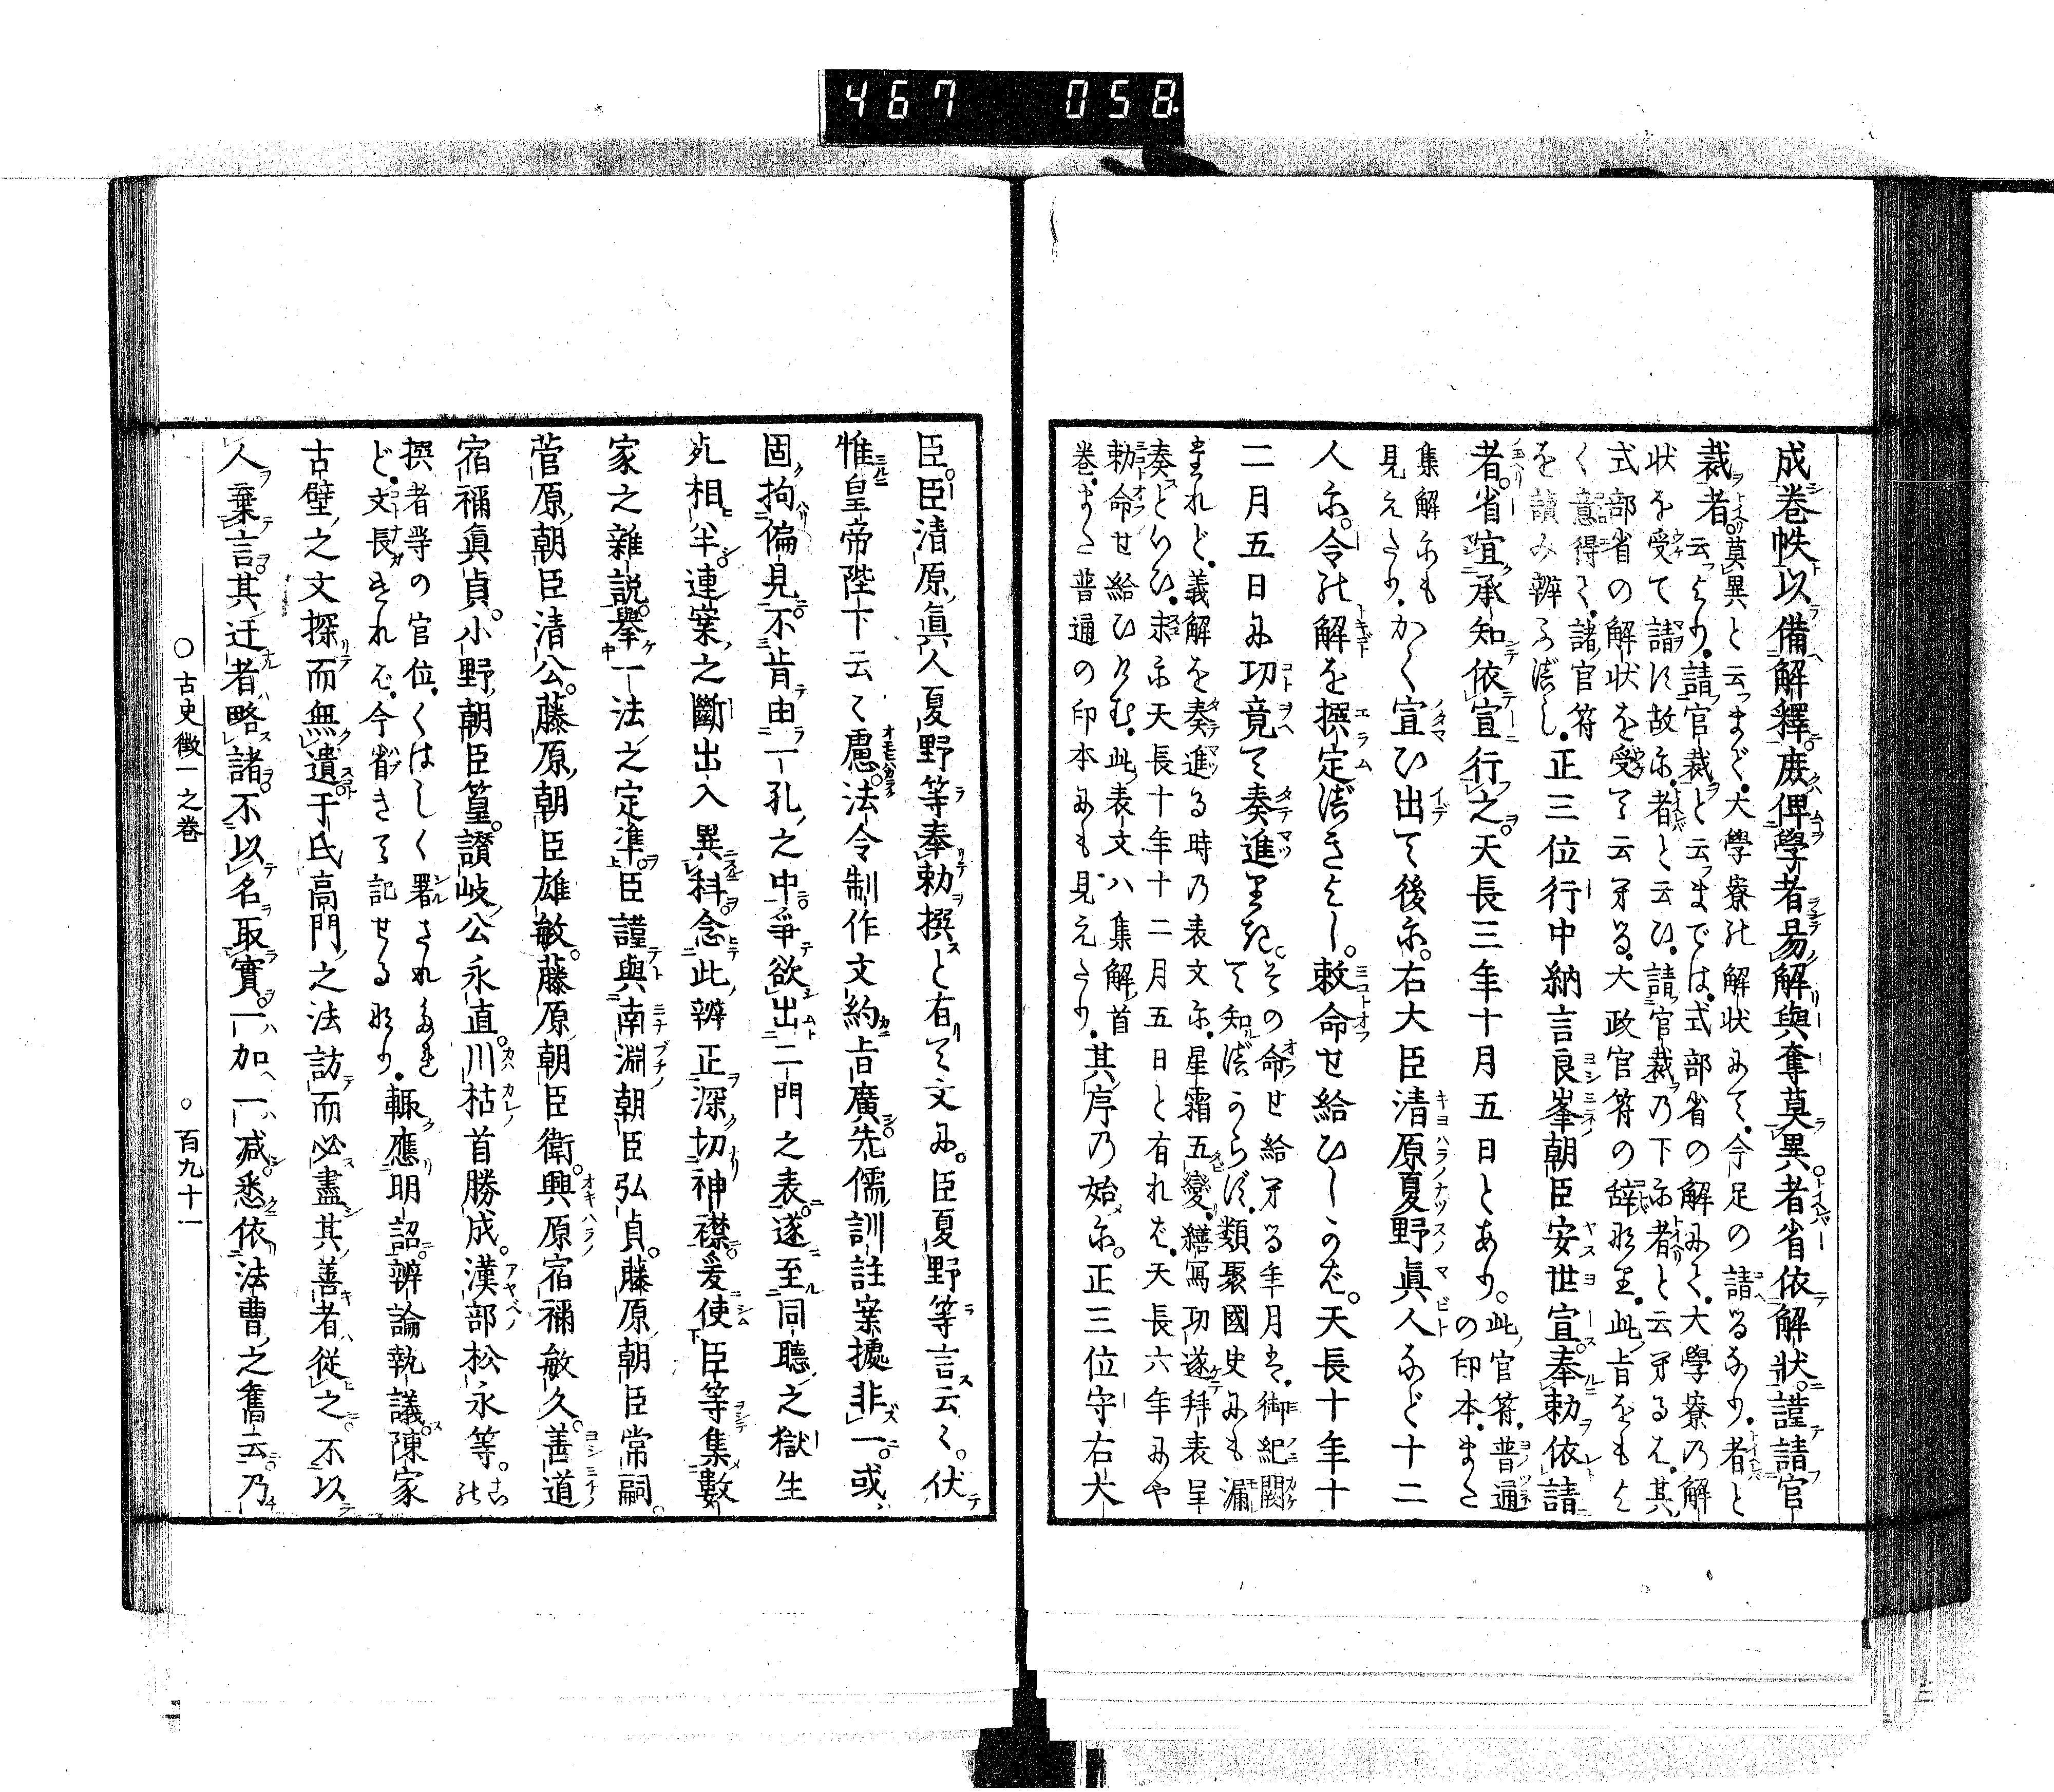 467 058
成卷帙以備解釋庶俾學者易解與奪莫異者省依解狀謹請官
裁者莫異と云まで、大學寮の解狀にて、今足の請へるなり、者と
云より、請官裁と云までは、式部省の解にて、大學寮の解
狀を受て請す故に、者と云ひ、請官裁の下に者と云るは、其
式部省の解狀を受て云る、大政官符の辞なり、此旨をもよ
く意得て、諸官符
を讀み辨ふべし、正三位行中納言良峯朝臣安世宣奉勅依請
者省宜承知依宣行之天長三年十月五日とあり。此官符、普通
の印本、また
集解にも
見えたり、かく宣ひ出て後に。右大臣清原夏野眞人など十二
人に。令の解を撰定べきよし。敕命せ給ひしかば。天長十年十
二月五日に功竟て奏進りき。その命せ給へる年月は、御紀闕
て知べからず、類聚國史にも漏
たれど、義解を奏進る時の表文に、星霜五變、繕寫功遂拜表呈
奏といひ、求に天長十年十二月五日と有れば、天長六年にや
勅命せ給ひけむ、此表文ハ集解首
卷、また普通の印本にも見えたり、其序の始に。正三位守右大
臣。臣清原眞人夏野等奉勅撰と有て文に。臣夏野等言云々。伏
惟皇帝陛下云々慮。法令制作文約旨廣先儒訓註案據非一。或
固拘偏見不肯由一孔之中爭欲出二門之表遂至同聽之獄生
死相半連案之斷出入異科念此辨正深切神襟爰使臣等集數
家之雜説擧一法之定準臣謹與南淵朝臣弘貞。藤原朝臣常嗣。
菅原朝臣清公。藤原朝臣雄敏。藤原朝臣衛。興原宿禰敏久。善道
宿禰眞貞。小野朝臣篁。讃岐公永直。川枯首勝成。漢部松永等。古の
撰者等の官位、くはしく署されたれ
ど、文長ければ、今省きて記せるなり、輙應明詔辨論執議陳家
古壁之文探而無遺于氏高門之法訪而必盡其善者從之不以
人棄言其迂者略諸不以名取實一加一減悉依法曹之舊云乃
○古史徴一之卷 ○百九十一